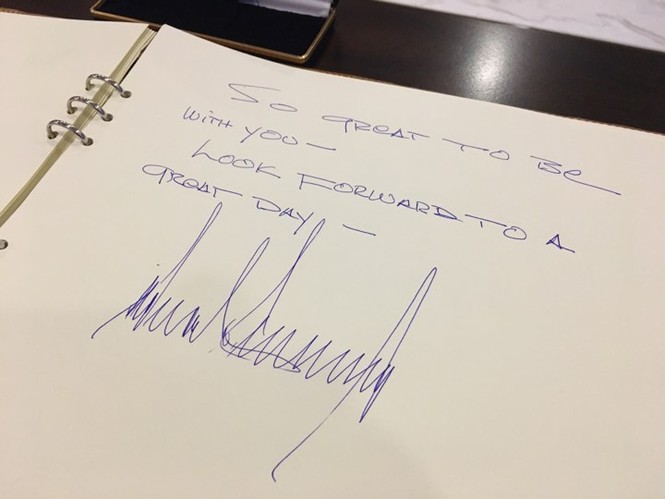 SO GREAT TO BE
WITH YOU —
LOOK FORWARD TO A
GREAT DAY! —